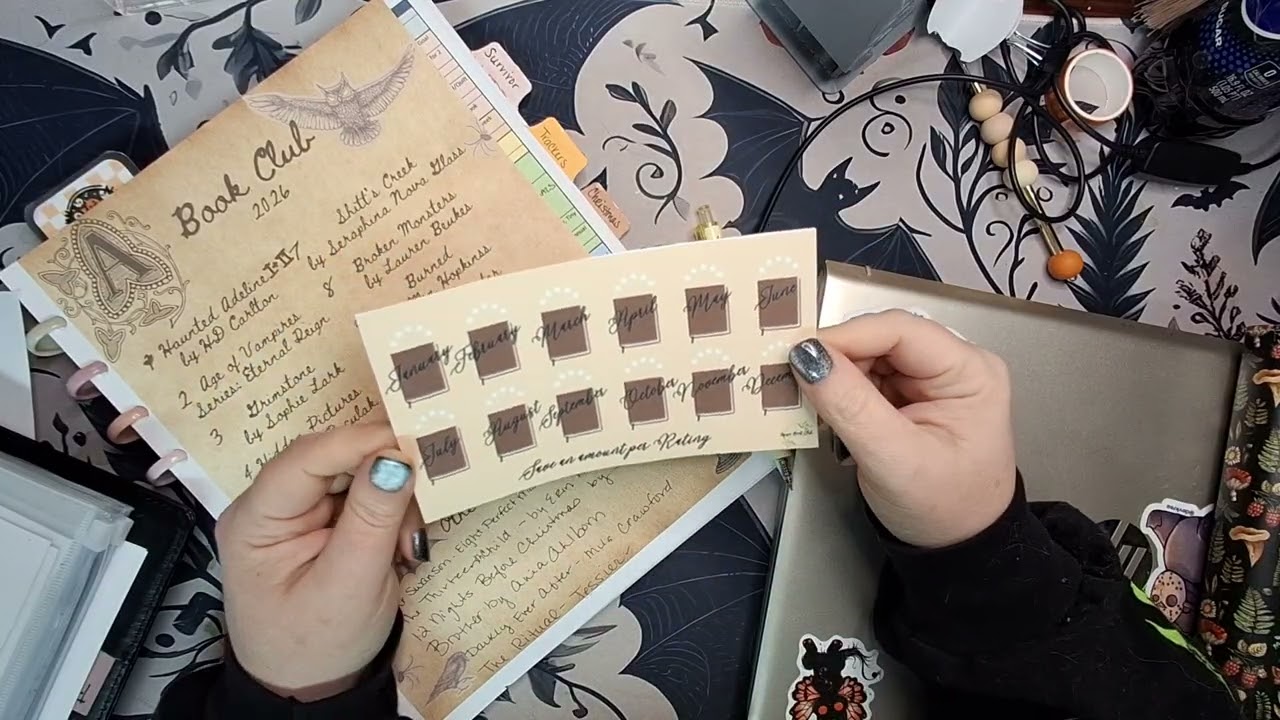 Survivor
Trackers
Christmas
A
Book Club
2026
Haunted Adeline I-II
by HD Carlton
2 Age of Vampires
Series: Eternal Reign
3 Grimstone
by Sophie Lark
4 Hidden Pictures
7 Shitt's Creek
by Seraphina Nova Glass
8 Broken Monsters
by Lauren Beukes
Burned
Hopkins
January February March April May June
July August September October November Decem
Save an amount per Rating
12 Nights Before Christmas by
Brother by Ania Ahlborn
Darkly Ever After - Mue Crawford
The Ritual